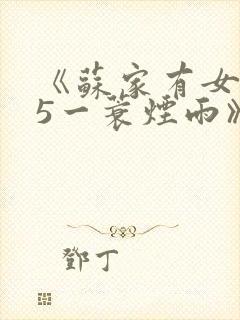 《蘇家有女
5一蓑煙雨》
鄧丁